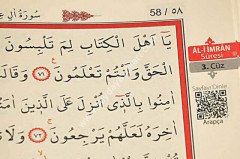 سُورَةُ اٰلِ عِ
58 / ٥٨
يَٓا اَهْلَ الْكِتَابِ لِمَ تَلْبِسُونَ
الْحَقَّ وَاَنْتُمْ تَعْلَمُونَ ﴿٧١﴾ وَقَالَتْ
اٰمِنُوا بِالَّذ۪ٓي اُنْزِلَ عَلَى الَّذ۪ينَ اٰمَنُوا
اٰخِرَهُ لَعَلَّهُمْ يَرْجِعُونَ ﴿٧٢﴾ وَلَا
ÂL-İ İMRÂN
Sûresi
3. Cüz
Sayfayı Dinle
Arapça